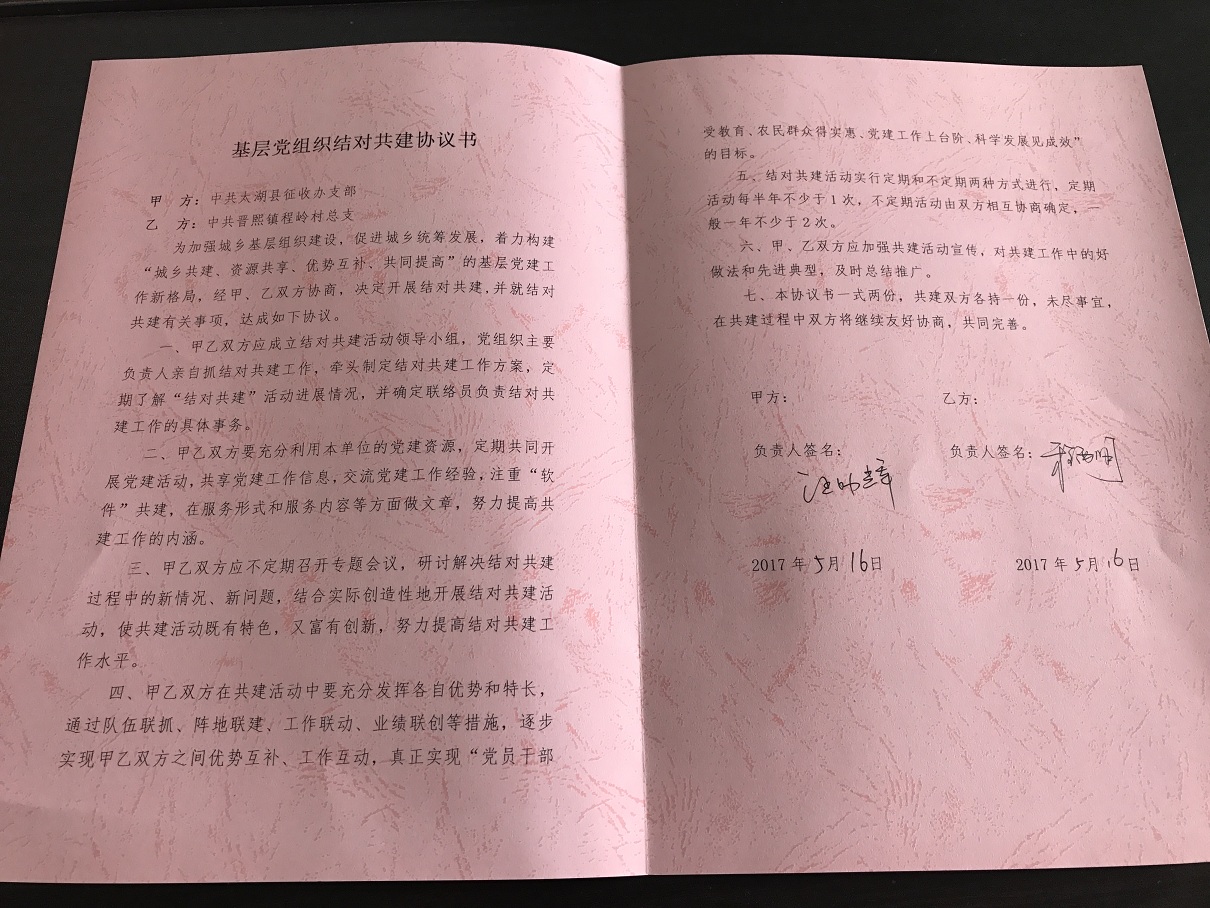 基层党组织结对共建协议书
甲 方：中共太湖县征收办支部
乙 方：中共晋熙镇程岭村总支
为加强城乡基层组织建设，促进城乡统筹发展，着力构建
“城乡共建、资源共享、优势互补、共同提高”的基层党建工
作新格局，经甲、乙双方协商，决定开展结对共建,并就结对
共建有关事项，达成如下协议。
一、甲乙双方应成立结对共建活动领导小组，党组织主要
负责人亲自抓结对共建工作，牵头制定结对共建工作方案，定
期了解“结对共建”活动进展情况，并确定联络员负责结对共
建工作的具体事务。
二、甲乙双方要充分利用本单位的党建资源，定期共同开
展党建活动，共享党建工作信息，交流党建工作经验，注重“软
件”共建，在服务形式和服务内容等方面做文章，努力提高共
建工作的内涵。
三、甲乙双方应不定期召开专题会议，研讨解决结对共建
过程中的新情况、新问题，结合实际创造性地开展结对共建活
动，使共建活动既有特色，又富有创新，努力提高结对共建工
作水平。
四、甲乙双方在共建活动中要充分发挥各自优势和特长，
通过队伍联抓、阵地联建、工作联动、业绩联创等措施，逐步
实现甲乙双方之间优势互补、工作互动，真正实现“党员干部
受教育、农民群众得实惠、党建工作上台阶、科学发展见成效”
的目标。
五、结对共建活动实行定期和不定期两种方式进行，定期
活动每半年不少于1次，不定期活动由双方相互协商确定，一
般一年不少于2次。
六、甲、乙双方应加强共建活动宣传，对共建工作中的好
做法和先进典型，及时总结推广。
七、本协议书一式两份，共建双方各持一份，未尽事宜，
在共建过程中双方将继续友好协商，共同完善。
甲方： 乙方：
负责人签名： 负责人签名：
2017年5月16日 2017年5月16日